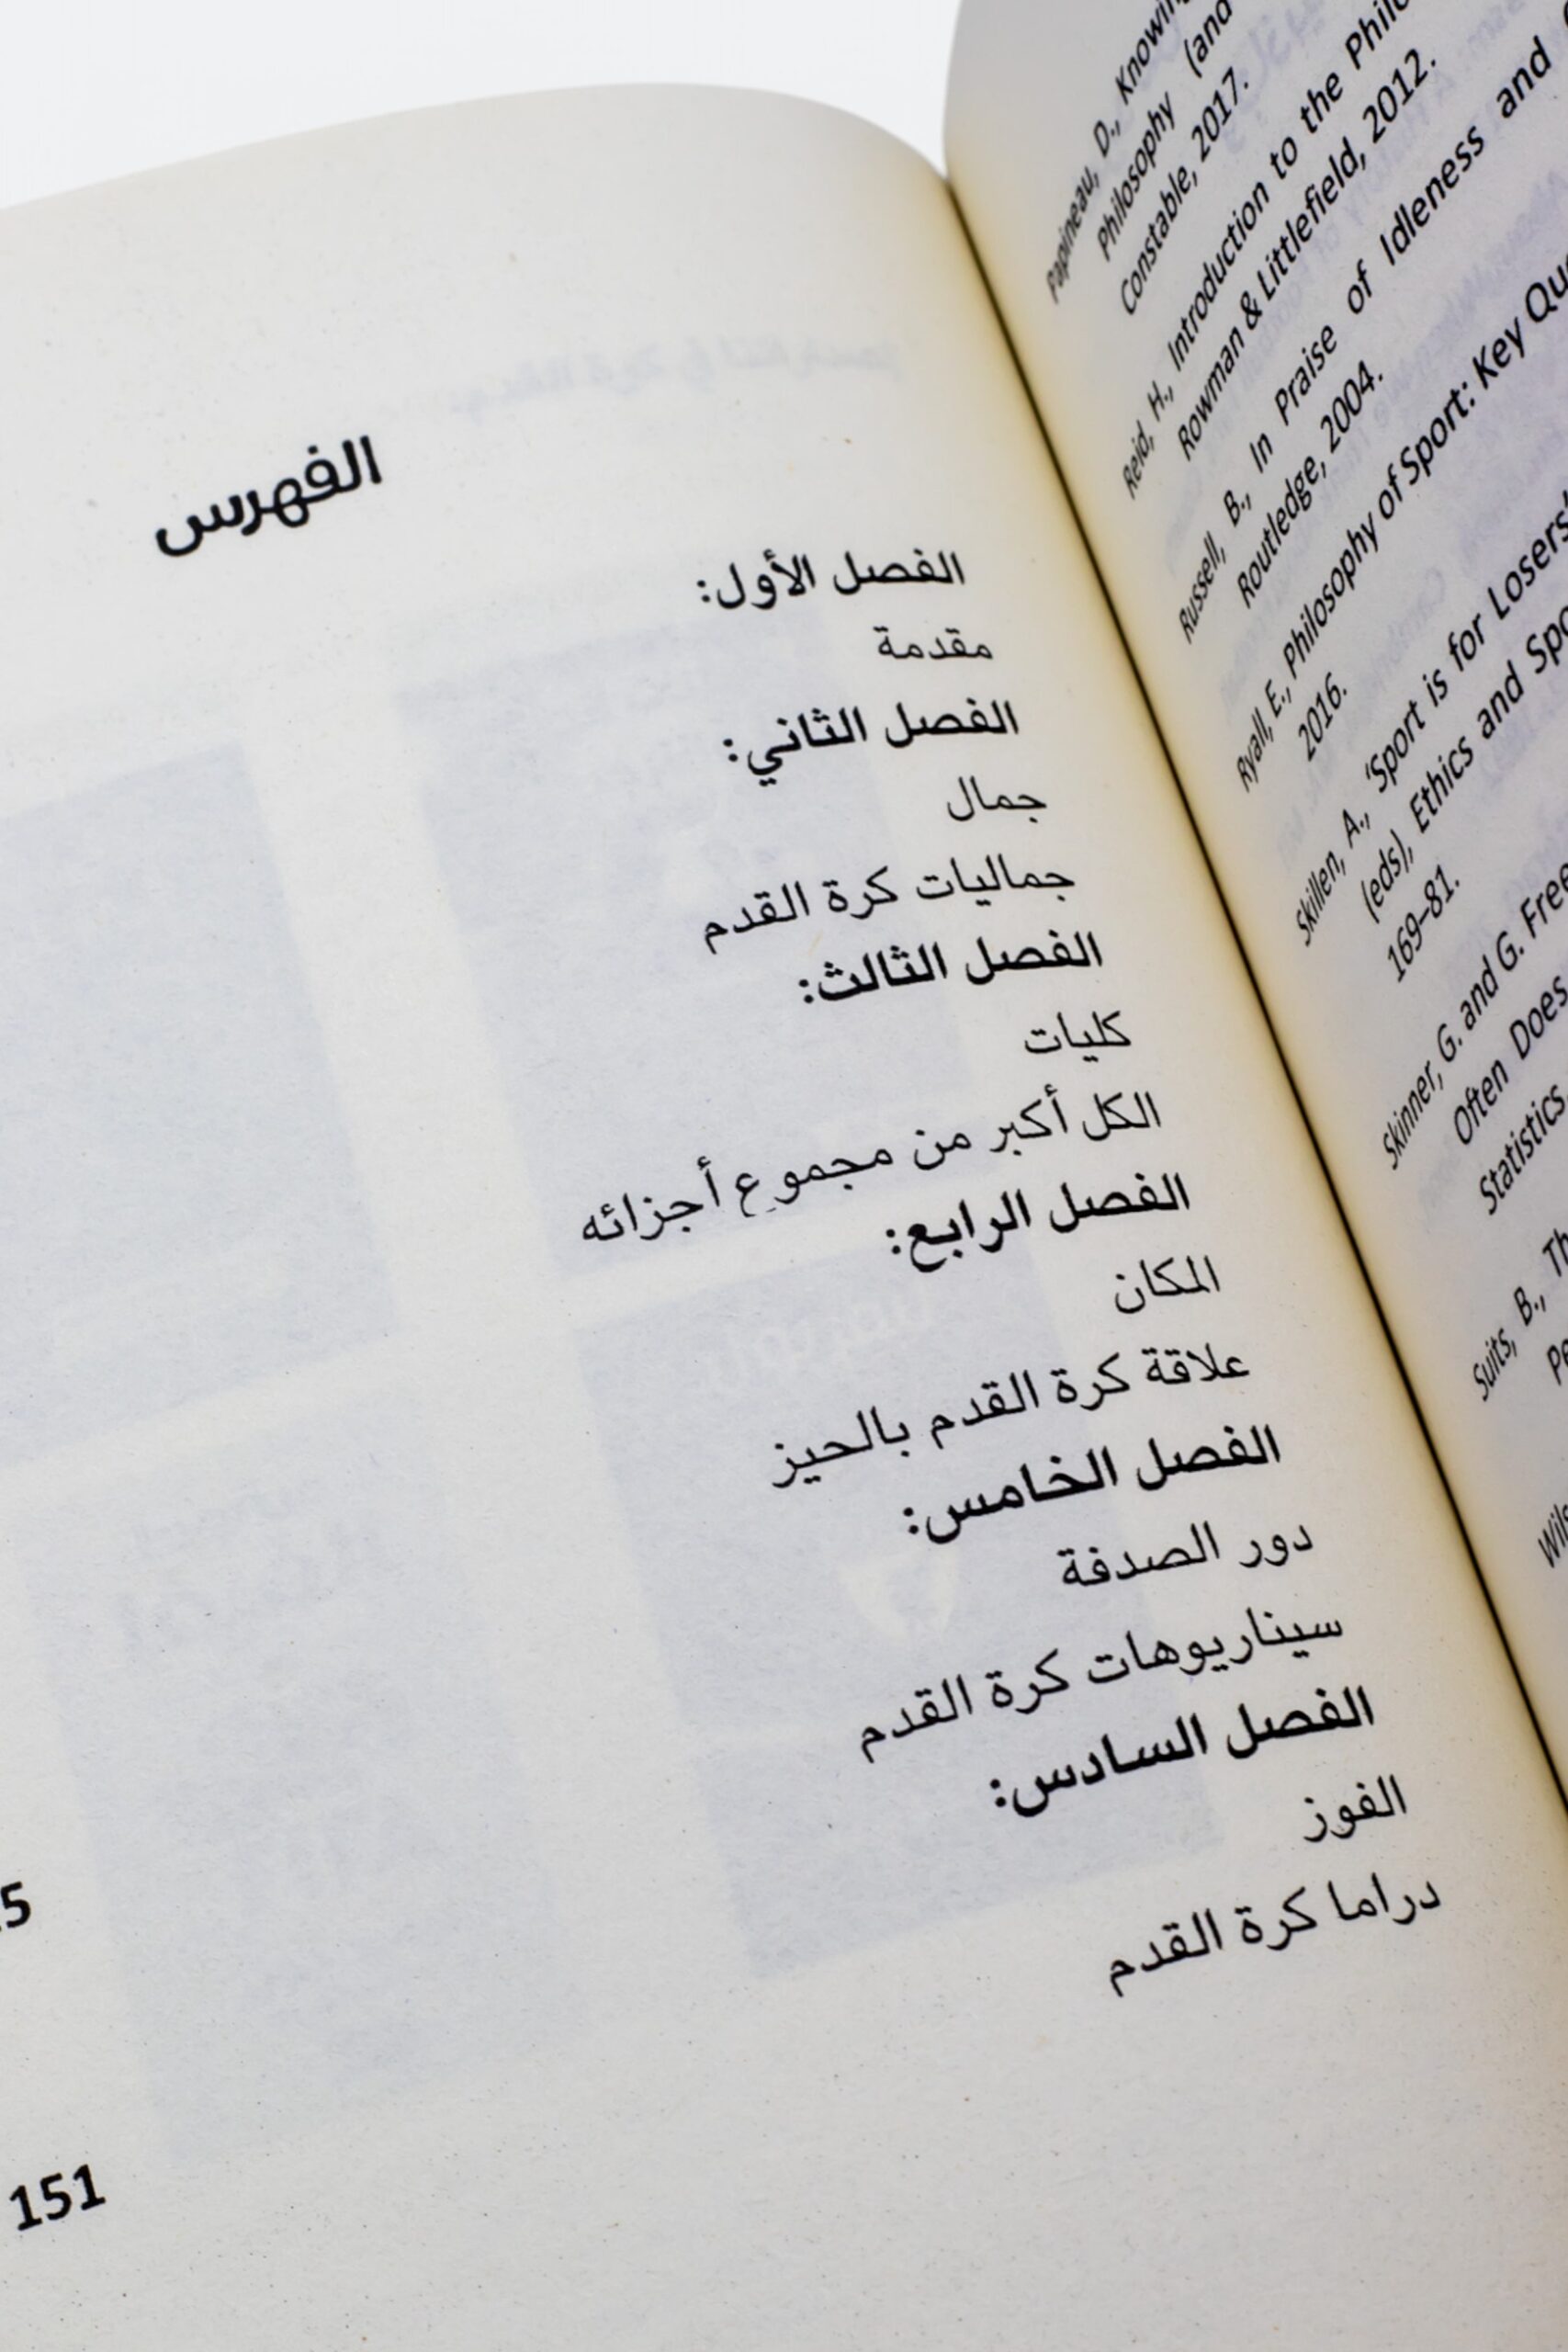 الفهرس
الفصل الأول:
مقدمة
الفصل الثاني:
جمال
جماليات كرة القدم
الفصل الثالث:
كليات
الكل أكبر من مجموع أجزائه
الفصل الرابع:
المكان
علاقة كرة القدم بالحيز
الفصل الخامس:
دور الصدفة
سيناريوهات كرة القدم
الفصل السادس:
الفوز
دراما كرة القدم
5
151
Papineau, D., Knowing
Philosophy (and
Constable, 2017.
Reid, H., Introduction to the
Rowman & Littlefield, 2012.
Russell, B., In Praise of Idleness and
Routledge, 2004.
Ryall, E., Philosophy of Sport: Key
2016.
Skillen, A., 'Sport is for
(eds), Ethics and
169–81.
Skinner, G. and G.
Often Does
Statistics
Suits, B.,